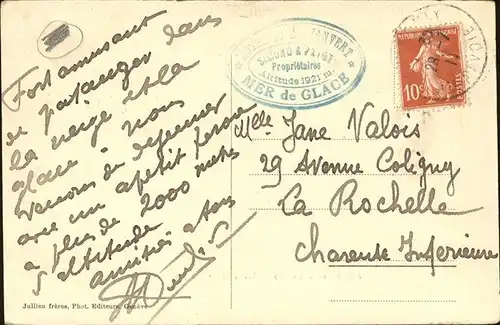 Fort amusant
de patauger dans
la neige et la
glace, nous
venons de déjeuner
avec un apetit féroce
à plus de 2000 mètres
d'altitude
amitiés a tous
MONTANVERT
SIMOND & PAYOT
Propriétaires
Altitude 1921 m.
MER de GLACE
REPUBLIQUE FRANÇAISE
10c
Melle Jane Valois
29 Avenue Coligny
La Rochelle
Charente Inferieure
Jullien frères, Phot. Editeurs, Genève